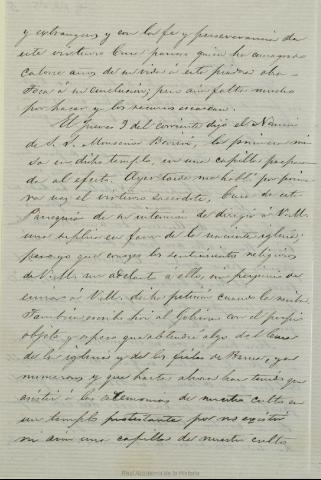 y extrangeros y con la fe y perseverancia de
este virtuoso Cura parroco quien ha consagrado
catorce años de su vida á esta piadosa obra
toca á su conclusion; pero aun falta mucho
por hacer y los recursos escasean.
El Jueves 9 del corriente dijo el Nuncio
de S. S. Monseñor la primera mi
sa en dicho templo, en una capilla prepara
da al efecto. Ayer tarde me habló por prime
ra vez el virtuoso sacerdote, Cura de esta
Parroquia de su intencion de dirigir á V.M.
una suplica en favor de la naciente iglesia;
pero yo que conozco los sentimientos religiosos
de V.M. me adelanto á ella, sin perjuicio de
enviar á V.M. dicha peticion cuando la reciba.
Tambien escribo hoy al Gobierno con el propio
objeto y espero que obtendré algo del
de las iglesias y de los fieles de Berna, que
numerosos y que hasta ahora han tenido que
asistir á las ceremonias de nuestro culto en
un templo protestante por no existir
ni aun una capilla de nuestro culto
Real Academia de la Historia